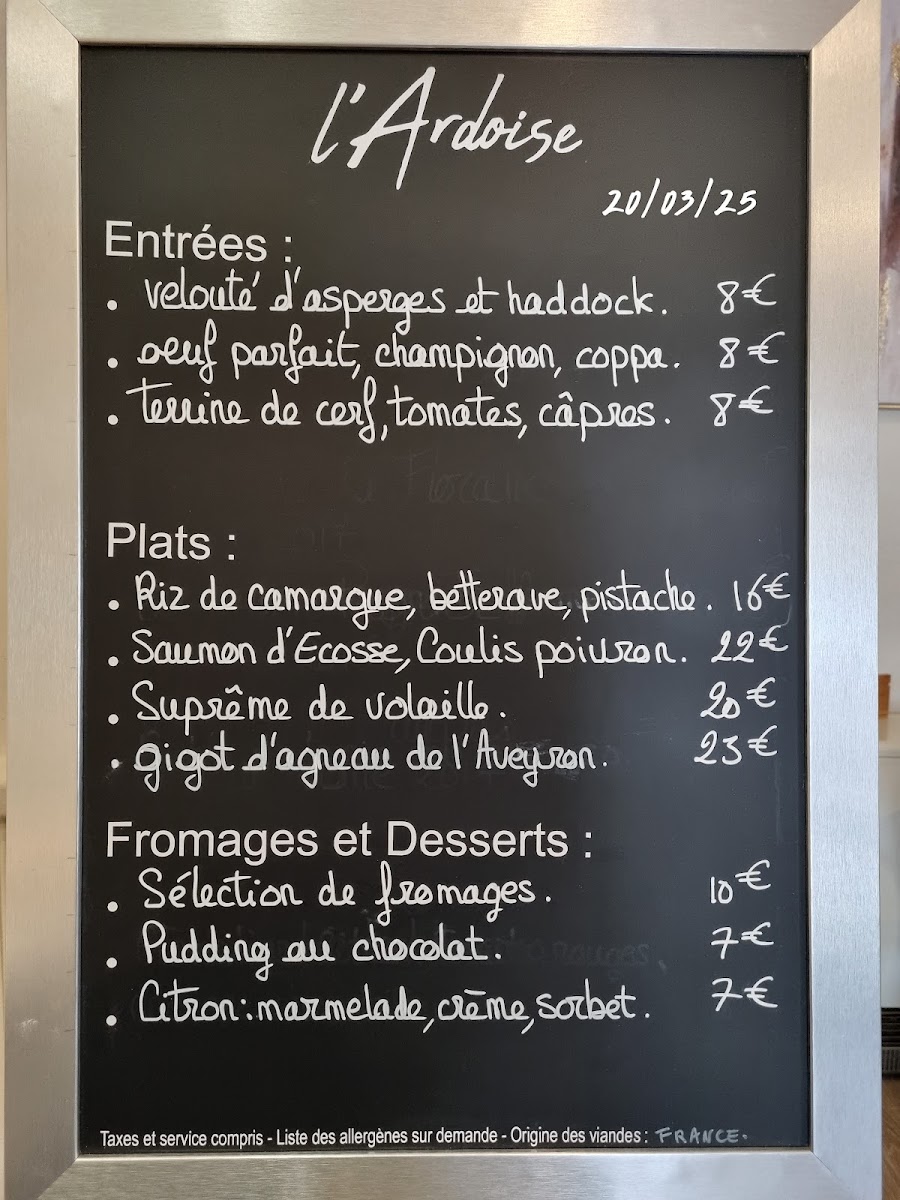 l'Ardoise
20/03/25
Entrées :
. velouté d'asperges et haddock. 8€
. oeuf parfait, champignon, coppa. 8€
. Terrine de cerf, tomates, câpres. 8€
Plats :
. Riz de camargue, betterave, pistache. 16€
. Saumon d'Ecosse, Coulis poivron. 22€
. Suprême de volaille. 20€
. gigot d'agneau de l'Aveyron. 23€
Fromages et Desserts :
. Sélection de fromages. 10€
. Pudding au chocolat. 7€
. Citron: marmelade, crème, sorbet. 7€
Taxes et service compris - Liste des allergènes sur demande - Origine des viandes : FRANCE.